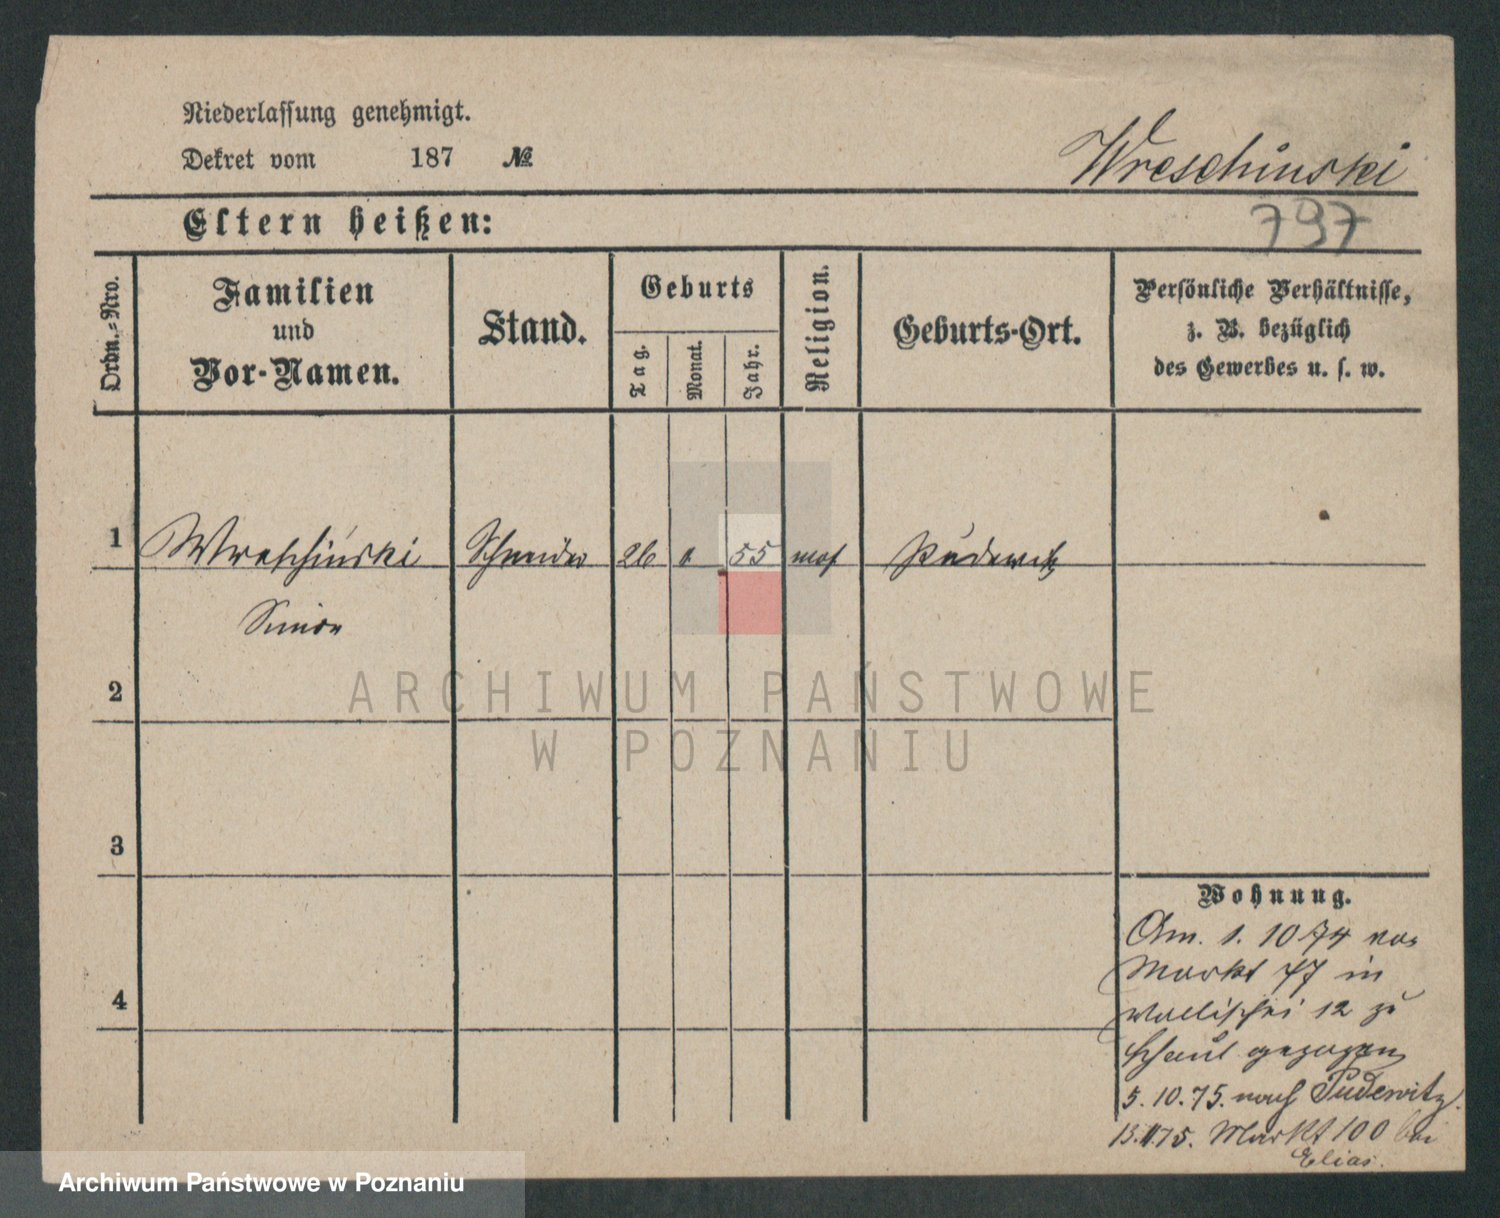 Niederlassung genehmigt.
Dekret vom 187 №
Wreschinski
Eltern heißen:
797
Ordn.-Nro.
Familien
und
Vor-Namen.
Stand.
Geburts
Tag.
Monat.
Jahr.
Religion.
Geburts-Ort.
Persönliche Verhältnisse,
z. B. bezüglich
des Gewerbes u. s. w.
1 Wreschinski Schneider 26 55 mos Pudewitz
Simon
2
3
4
Wohnung.
Am. 1. 10 74 von
Markt 77 in
Wallischei 12 zu
gezogen
5.10.75. nach Pudewitz.
13.11.75. Markt 100 bei
Elias.
ARCHIWUM PAŃSTWOWE
W POZNANIU
Archiwum Państwowe w Poznaniu